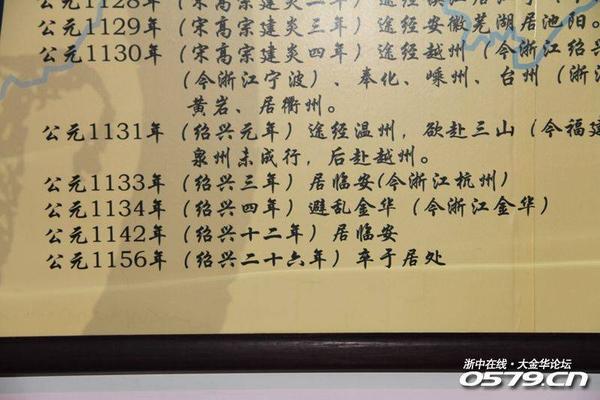 公元1128年（宋高宗建炎二年）途经
公元1129年（宋高宗建炎三年）途经安徽芜湖居池阳。
公元1130年（宋高宗建炎四年）途经越州（今浙江绍兴
（今浙江宁波）、奉化、嵊州、台州（浙江
黄岩、居衢州。
公元1131年（绍兴元年）途经温州，欲赴三山（今福建
泉州未成行，后赴越州。
公元1133年（绍兴三年）居临安(今浙江杭州）
公元1134年（绍兴四年）避乱金华（今浙江金华）
公元1142年（绍兴十二年）居临安
公元1156年（绍兴二十六年）卒于居处
浙中在线·大金华论坛
0579.cn